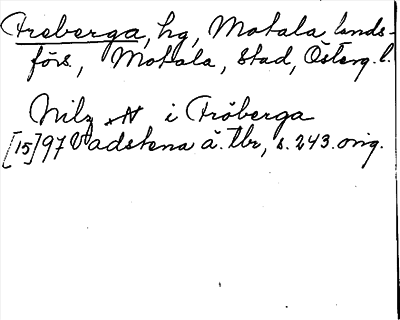 Freberga, hg, Motala lands-
förs, Motala, stad, Österg. l.
Nilz N i Fröberga
[15]97 Vadstena ä. tbr, s. 243. orig.